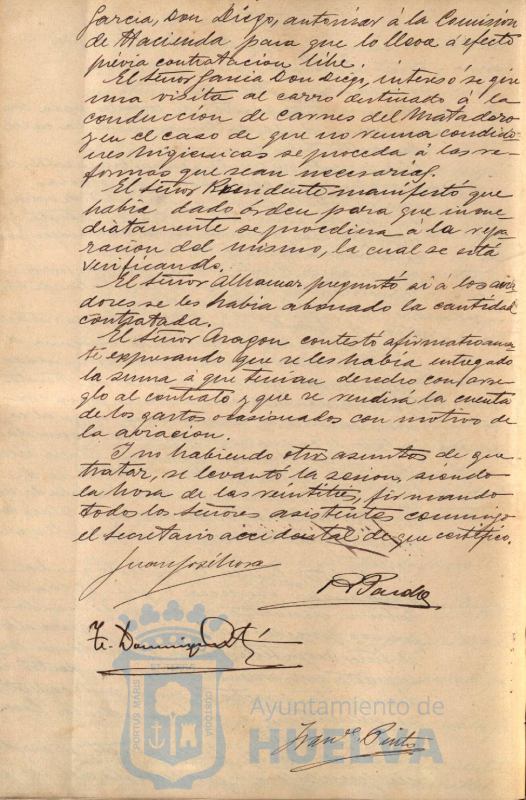 Garcia, Don Diego, autorizar á la Comisión
de Hacienda para que lo lleve á efecto
prévia contratacion libre.
El Señor Garcia Don Diego, interesó se gire
una visita al carro destinado á la
conducción de carnes del Matadero
y en el caso de que no reuna condicio-
nes higienicas se proceda á las re-
formas que sean necesarias.
El Señor Presidente manifestó que
habia dado órden para que inme
diatamente se procediera á la repa-
racion del mismo, la cual se está
verificando.
El Señor Alhamar preguntó si á los avia
dores se les habia abonado la cantidad
contratada.
El Señor Aragon contestó afirmativamen-
te expresando que se les habia entregado
la suma á que tenian derecho con arre-
glo al contrato y que se rendirá la cuenta
de los gastos ocasionados con motivo de
la aviacion.
Y no habiendo otros asuntos de que
tratar, se levantó la sesion, siendo
la hora de las veintitres, firmando
todos los señores asistentes conmigo
el secretario accidental de que certifico.
Juan José
Pardo
Fran Pinto
PORTUS MARIS ET TERRAE CUSTODIA
Ayuntamiento de
HUELVA